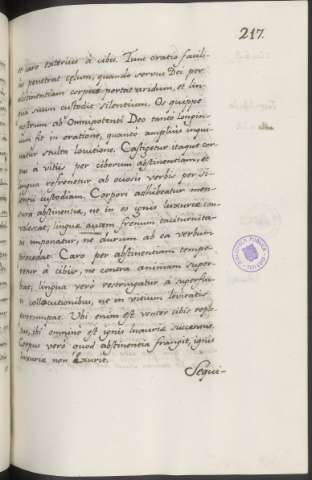 217.
et caro exterius à cibis. Tunc oratio facili-
us penetrat cęlum, quando servus Dei per
abstinentiam corpus portat aridum, et lin-
gua sicum custodit silentium. Os quippe
nostrum ab Omnipotenti Deo tantò longin-
quius fit in oratione, quantò amplius inqui-
natur stulta locutione. Castigetur itaque cor-
pus à vitiis per ciborum abstinentiam, et
lingua refrenetur ab ociosis verbis per si-
lentii custodiam. Corpori adhibeatur men-
sura abstinentiæ, ne in eo ignis luxuriæ con-
valescat; linguæ autem frenum taciturnita-
tis imponatur, ne aurum ab ea verbum
procedat. Caro per abstinentiam tempe-
retur à cibis, ne contra animam super-
biat; lingua verò restringatur à superflu-
is collocutionibus, ne in vitium levitatis
prorumpat. Ubi enim est venter cibis reple-
tus, ibi omninò est ignis luxuriæ succensus.
Corpus verò quod abstinentia frangit, ignis
luxuriæ non laurit.
Sequi-
BIBLIOTECA PUBLICA
TOLEDO